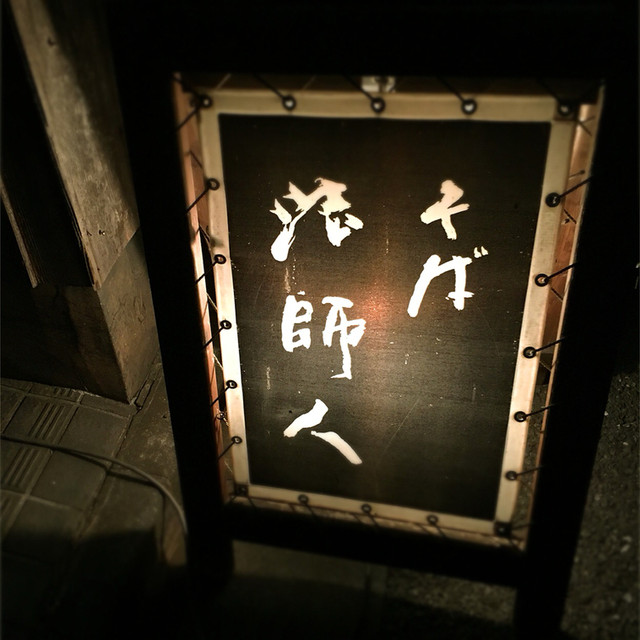 そば
法師人